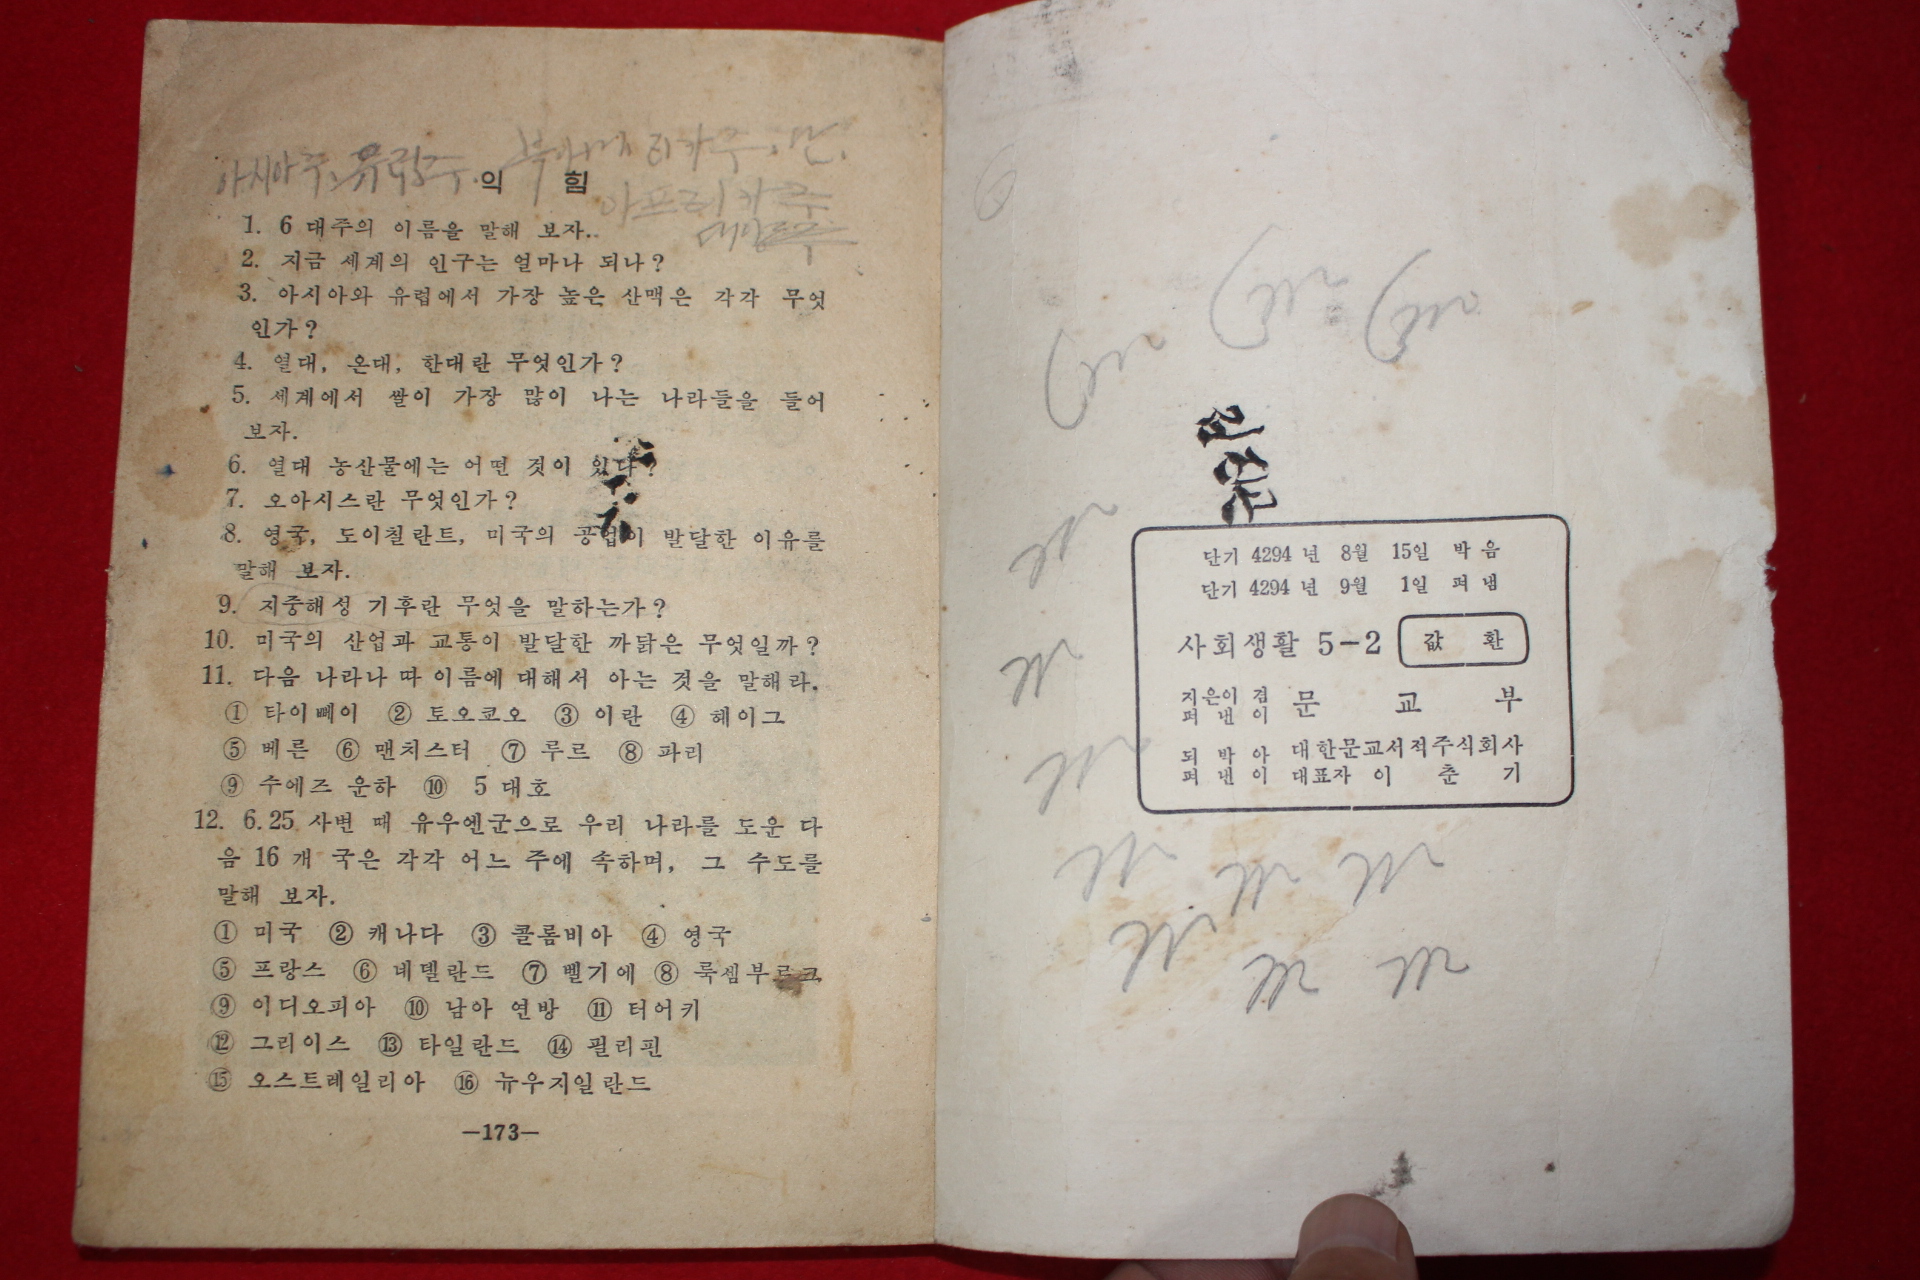 아시아주, 유럽주
아프리카주
익 힘
1. 6 대주의 이름을 말해 보자.
2. 지금 세계의 인구는 얼마나 되나?
3. 아시아와 유럽에서 가장 높은 산맥은 각각 무엇
인가?
4. 열대, 온대, 한대란 무엇인가?
5. 세계에서 쌀이 가장 많이 나는 나라들을 들어
보자.
6. 열대 농산물에는 어떤 것이 있나?
7. 오아시스란 무엇인가?
8. 영국, 도이칠란트, 미국의 공업이 발달한 이유를
말해 보자.
9. 지중해성 기후란 무엇을 말하는가?
10. 미국의 산업과 교통이 발달한 까닭은 무엇일까?
11. 다음 나라나 따 이름에 대해서 아는 것을 말해라.
① 타이뻬이 ② 토오쿄오 ③ 이란 ④ 헤이그
⑤ 베른 ⑥ 맨치스터 ⑦ 루르 ⑧ 파리
⑨ 수에즈 운하 ⑩ 5 대호
12. 6.25 사변 때 유우엔군으로 우리 나라를 도운 다
음 16 개 국은 각각 어느 주에 속하며, 그 수도를
말해 보자.
① 미국 ② 캐나다 ③ 콜롬비아 ④ 영국
⑤ 프랑스 ⑥ 네델란드 ⑦ 벨기에 ⑧ 룩셈부르크
⑨ 이디오피아 ⑩ 남아 연방 ⑪ 터어키
⑫ 그리이스 ⑬ 타일란드 ⑭ 필리핀
⑮ 오스트레일리아 ⑯ 뉴우지일란드
—173—
단기 4294 년 8월 15일 박음
단기 4294 년 9월 1일 펴냄
사회생활 5-2 값 환
지은이 겸
펴낸이 문교부
되박아
펴낸이 대한문교서적주식회사
대표자 이춘기